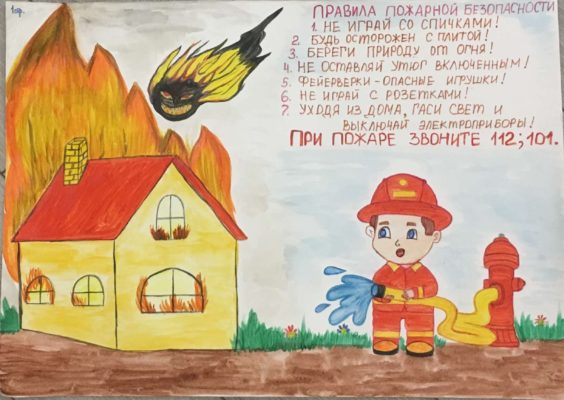 1гр.
ПРАВИЛА ПОЖАРНОЙ БЕЗОПАСНОСТИ
1. НЕ ИГРАЙ СО СПИЧКАМИ!
2. БУДЬ ОСТОРОЖЕН С ПЛИТОЙ!
3. БЕРЕГИ ПРИРОДУ ОТ ОГНЯ!
4. НЕ ОСТАВЛЯЙ УТЮГ ВКЛЮЧЕННЫМ!
5. ФЕЙЕРВЕРКИ-ОПАСНЫЕ ИГРУШКИ!
6. НЕ ИГРАЙ С РОЗЕТКАМИ!
7. УХОДЯ ИЗ ДОМА, ГАСИ СВЕТ И
ВЫКЛЮЧАЙ ЭЛЕКТРОПРИБОРЫ!
ПРИ ПОЖАРЕ ЗВОНИТЕ 112; 101.